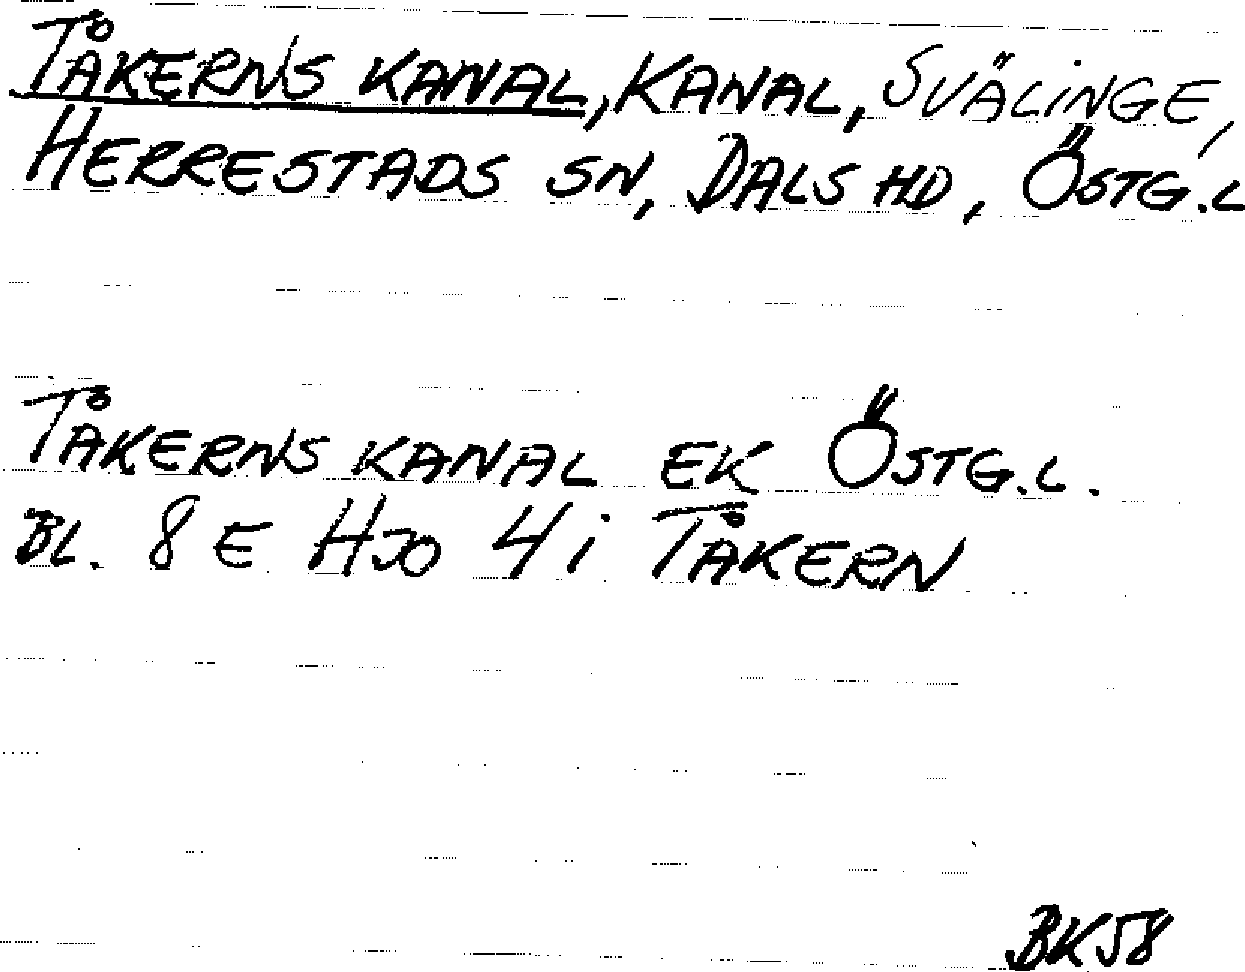 TÅKERNS KANAL, KANAL, SVÄLINGE,
HERRESTADS SN, DALS HD, ÖSTG.L
TÅKERNS KANAL EK ÖSTG.L.
BL. 8 E HJO 4 i TÅKERN
BK58